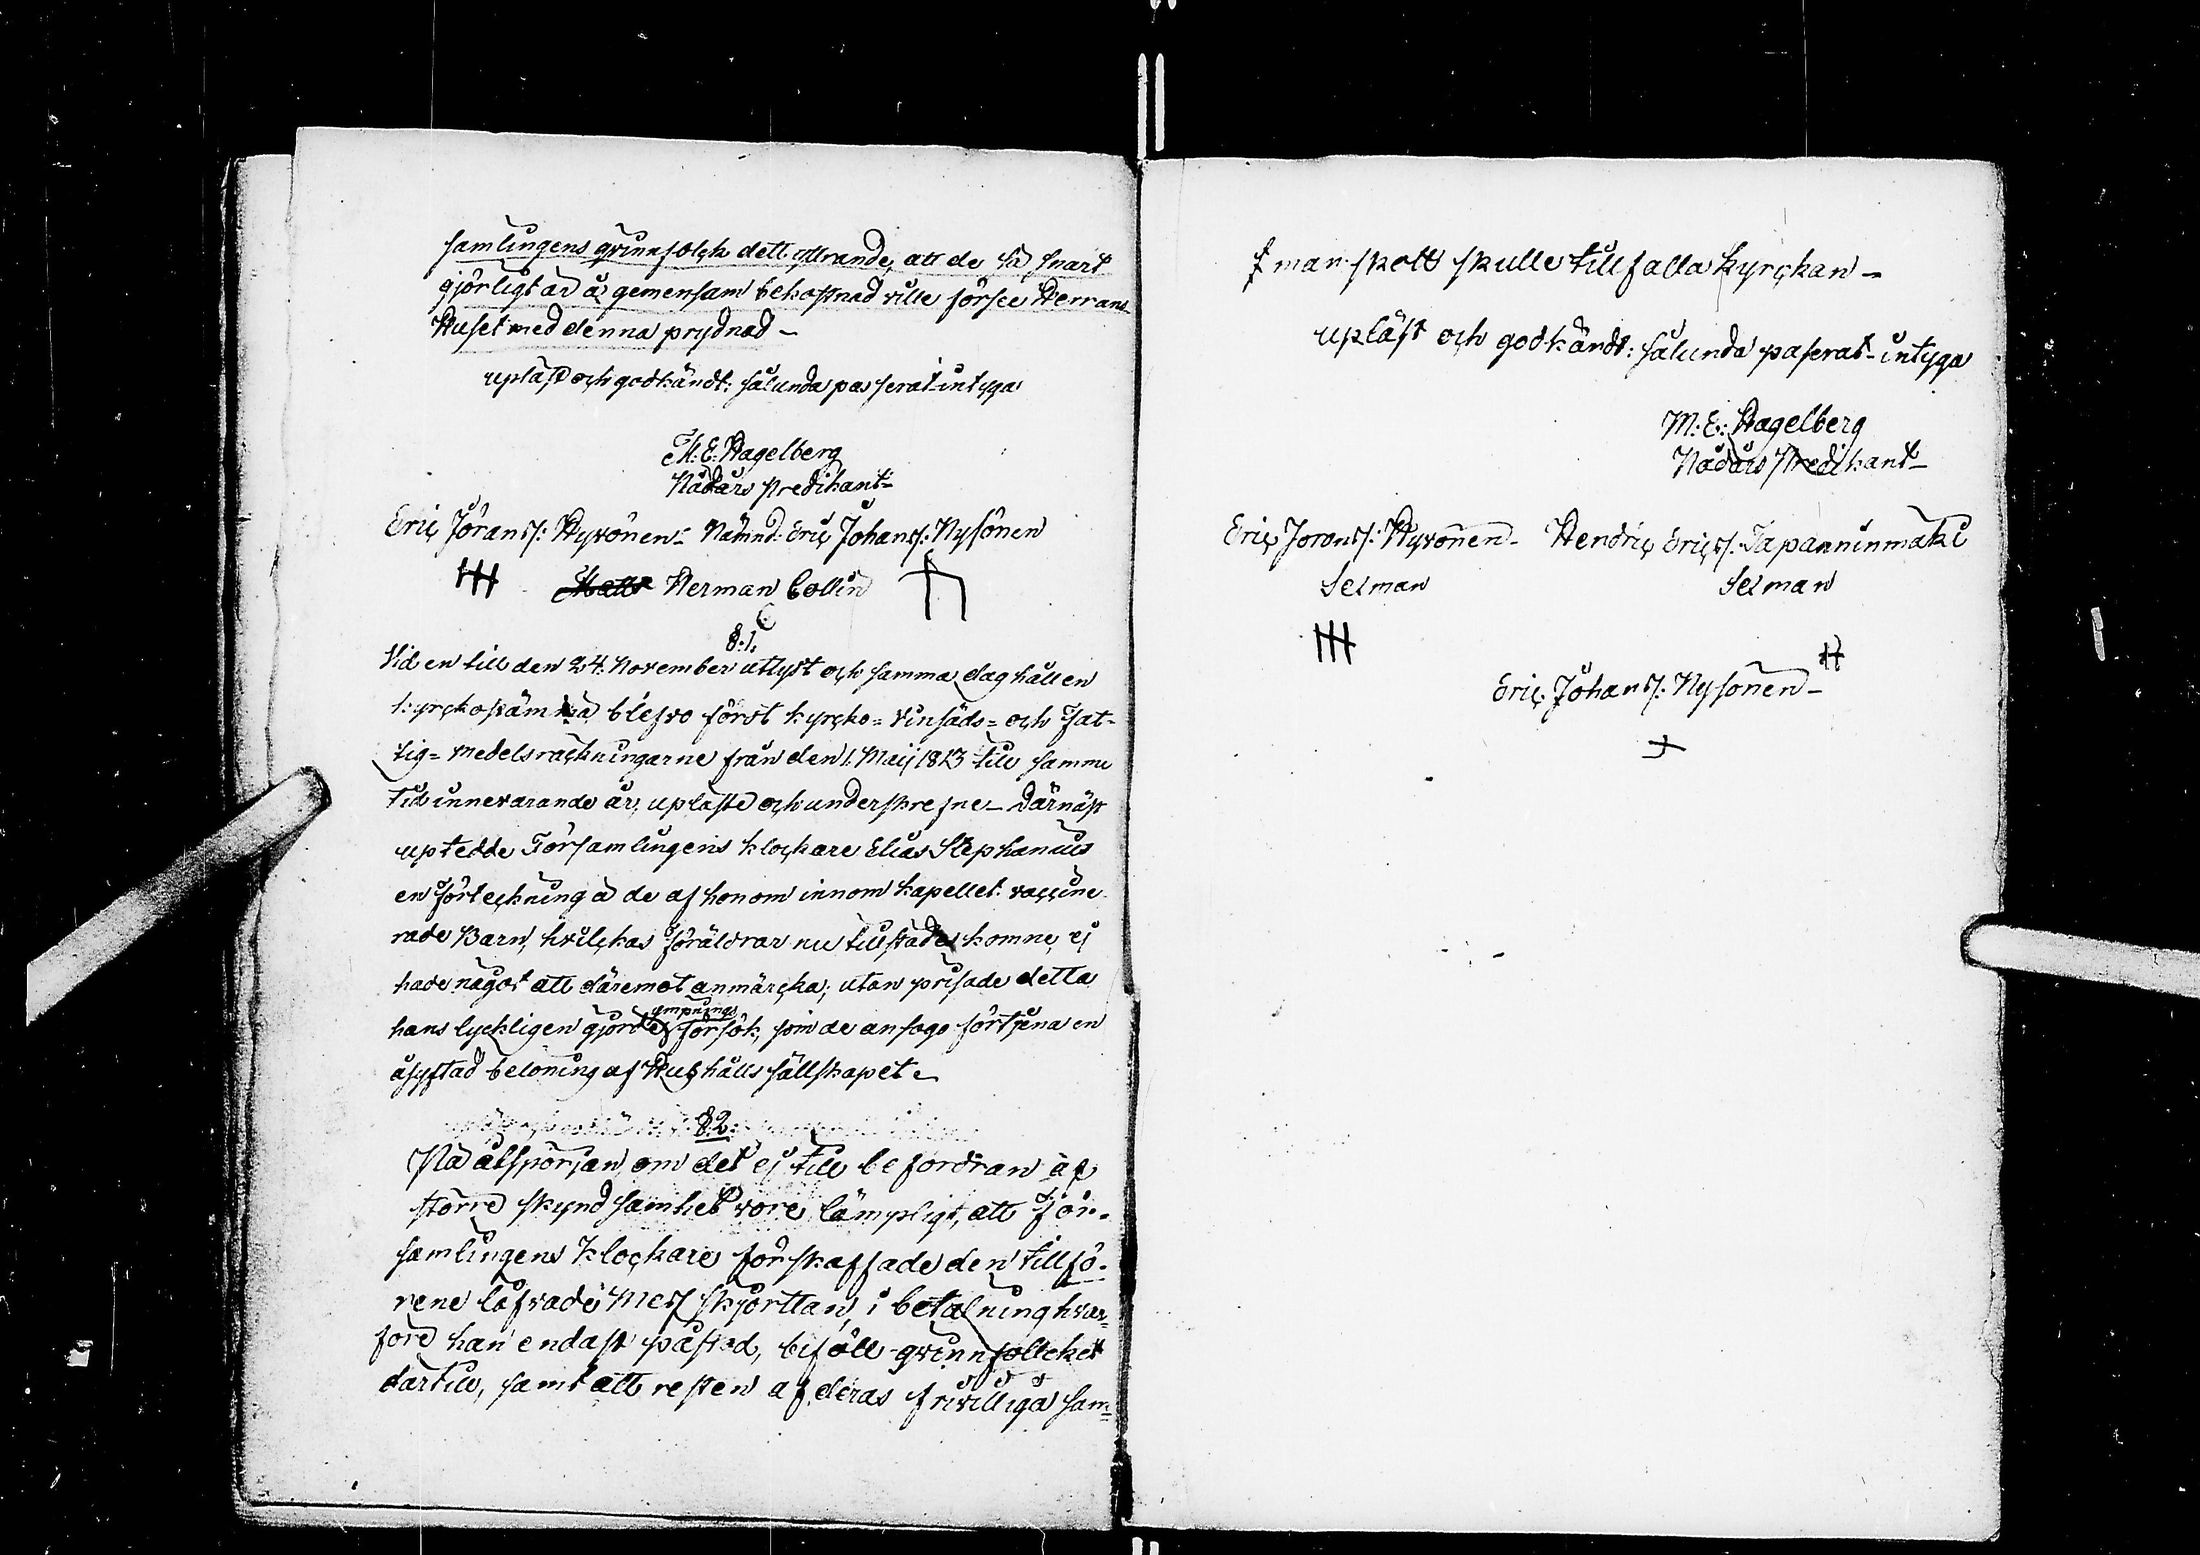 samlingens qvinnfolck dett yttrande, att de så snart
gjörligt är å gemensam bekostnad ville förse Herrans
Huset med denna prydnad –
upläst och godkändt: sålunda passerat intyga
M: E: Hagelberg
Nådårs Predikant –
Eric Jörans/: Hyvönen – Nämnd: Eric Johans/: Nysönen
Herman Collin
§:1.
Vid en till den 24. November utlyst och samma dag hållen
kyrckostämma blefvo först kyrcko= vinsäds= och Fat-
tig= medelsräckningarne från den 1. Maij 1813 till samma
tid innevarande år, upläste och underskrefne – Därnäst
uptedde Församlingens klockare Elias Stephanius
en förteckning å de af honom innom kapellet vaccine
rade Barn, hvilckas föräldrar nu tillstädes komne, ej
hade något att däremot anmärcka; utan prisade detta
hans lyckligen gjorde ympnings försök, som de ansågo förtjena en
åsyftad belöning af Hushålls sällskapet –
§2:
På åtspörjan, om det ej till befordran af
större skyndsamhet vore lämpligt, att För-
samlingens klockare förskaffade den tillfö-
rene låfvade Mess skjorttan, i betalning hvar-
före han endast påstod, biföll qvinnfollcket
därtill, samt att resten af deras frivilliga sam=
man skott skulle tillfalla kyrckan –
upläst och godkändt: sålunda passerat – intyga
M: E: Hagelberg
Nådårs Predikant –
Eric Jorans/: Hyvönen – Hendric Erics/: Tapanninmäki
Sexman Sexman
Eric Johans/: Nysönen –